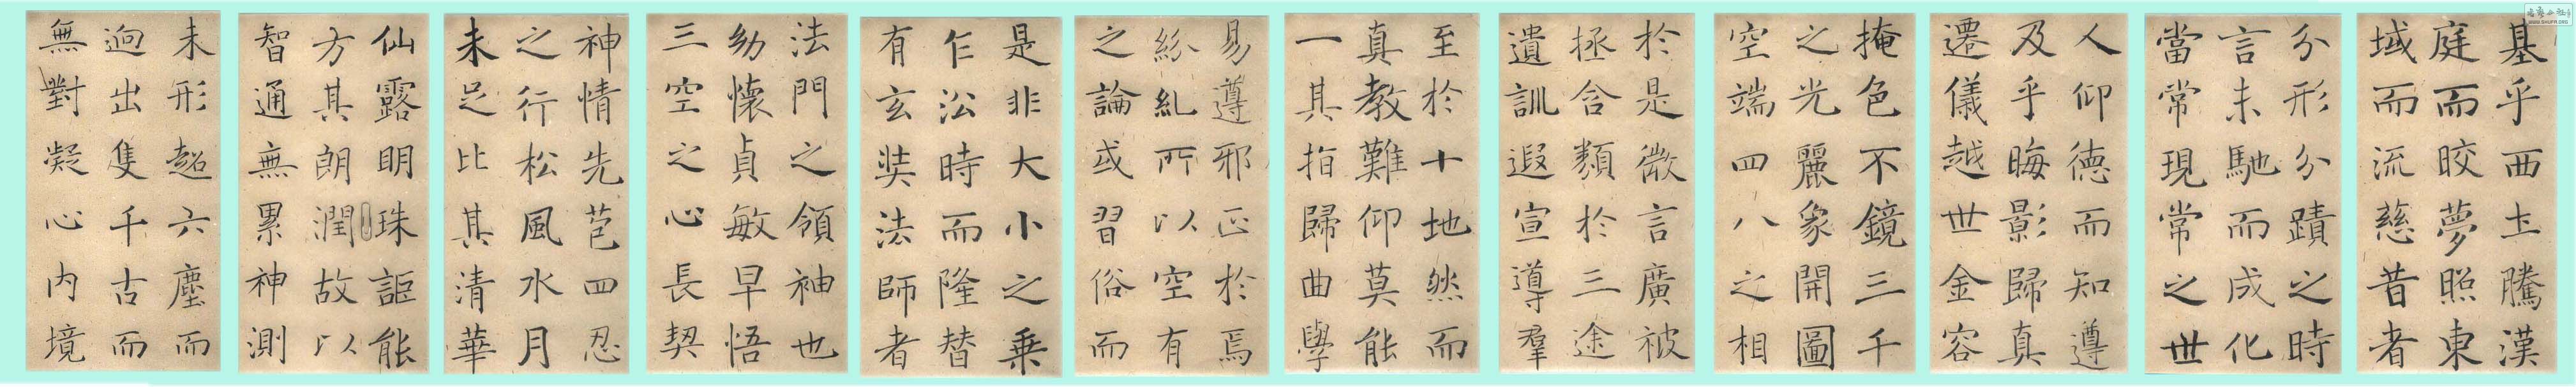 基乎西土騰漢
庭而皎夢照東
域而流慈昔者
分形分蹟之時
言未馳而成化
當常現常之世
人仰德而知遵
及乎晦影歸真
遷儀越世金容
掩色不鏡三千
之光麗象開圖
空端四八之相
於是微言廣被
拯含類於三途
遺訓遐宣導群
至於十地然而
真教難仰莫能
一其指歸曲學
易遵邪正於焉
紛糺所以空有
之論或習俗而
是非大小之乗
乍沿時而隆替
有玄奘法師者
法門之領袖也
幼懷貞敏早悟
三空之心長契
神情先苞四忍
之行松風水月
未足比其清華
仙露明珠詎能
方其朗潤故以
智通無累神測
未形超六塵而
迥出隻千古而
無對凝心内境